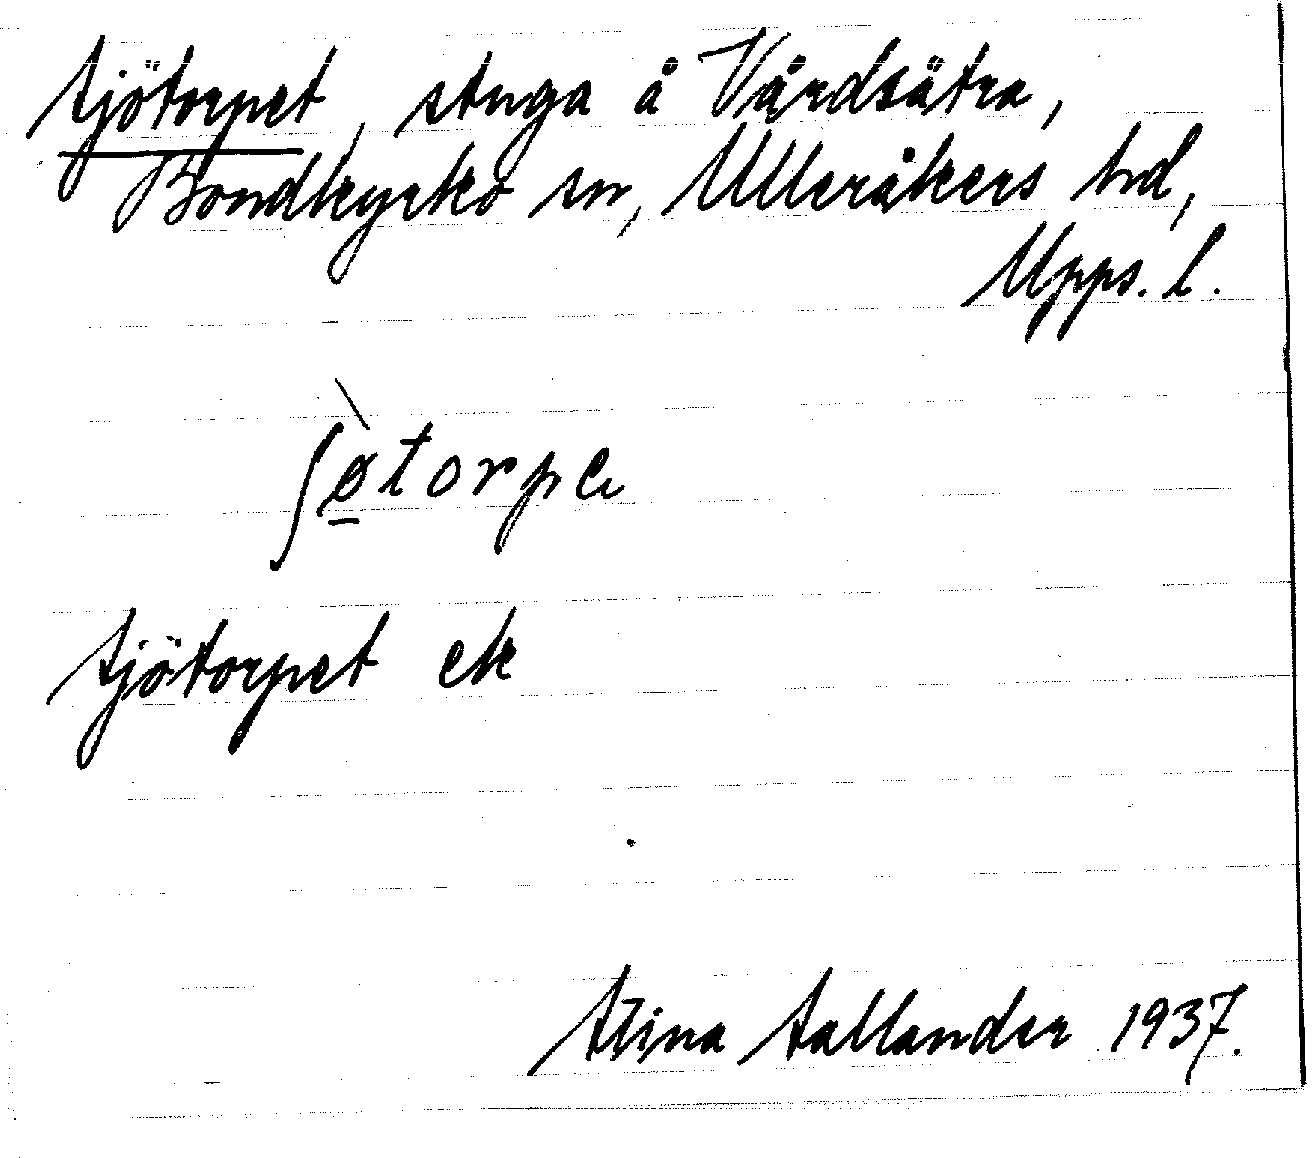 Sjötorpet, stuga å Vårdsätra,
Bondkyrko sn, Ulleråkers hd,
Upps. l.
ʃø̱̀torpe
Sjötorpet ek
Stina Sallander 1937.